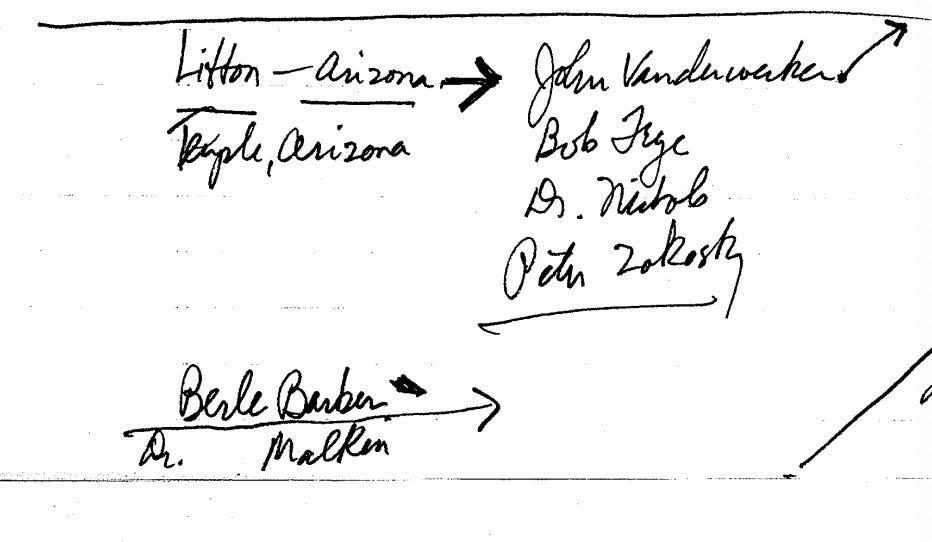 Litton – Arizona → John Vanderwerker
Temple, Arizona
Bob Frye
Dr. Nichols
Peter Zokosky
Berle Barber →
Dr. Malkin